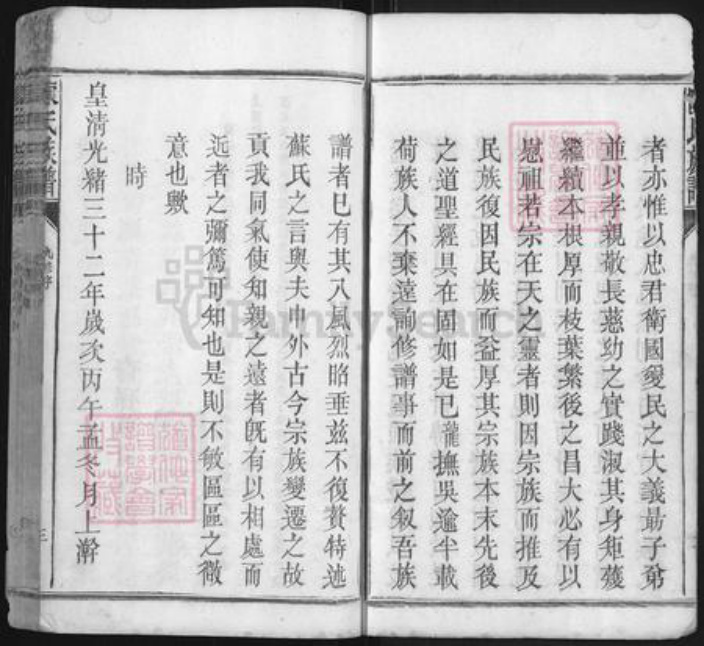 者亦惟以忠君衛國愛民之大義勗子弟
並以孝親敬長慈幼之實踐淑其身矩薙
繼續本根厚而枝葉繁後之昌大必有以
慰祖若宗在天之靈者則因宗族而推及
民族復因民族而益厚其宗族本末先後
之道聖經具在固如是已龍撫吳逾半載
荷族人不棄遠諭修譜事而前之叙吾族
譜者已有其人風烈昭垂茲不復贅特述
蘇氏之言與夫中外古今宗族變遷之故
貢我同氣使知親之遠者旣有以相處而
近者之彌篤可知也是則不敏區區之微
意也歟
時
皇清光緒三十二年歲次丙午孟冬月上澣
氏族譜
三
FamilySearch